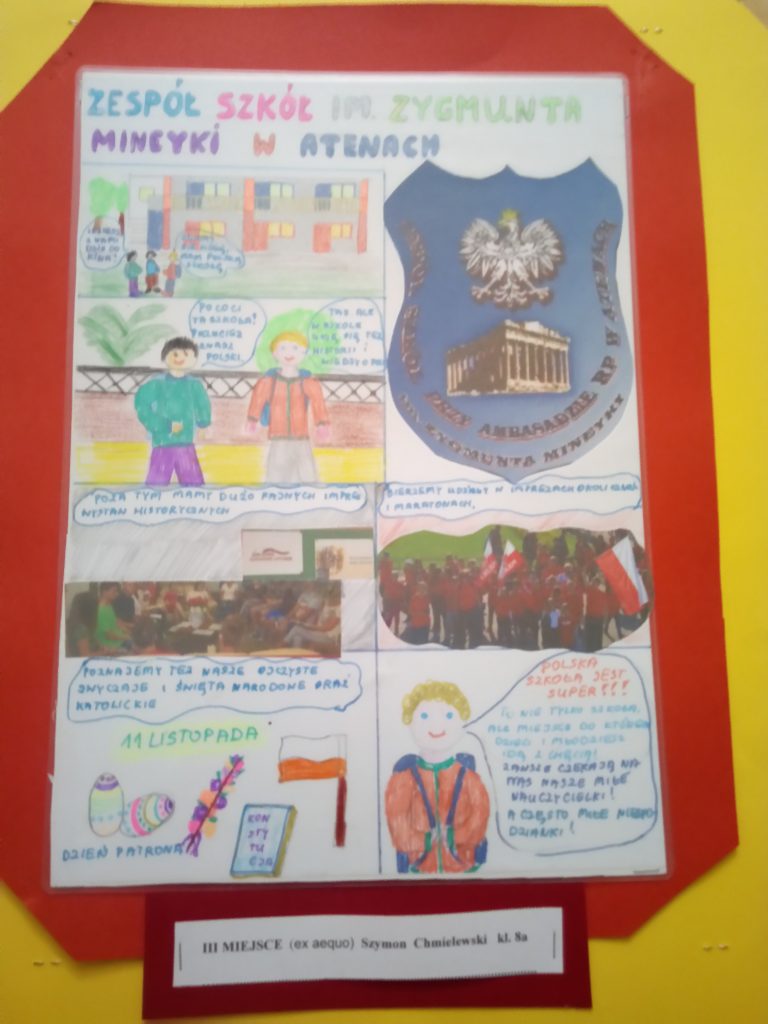 ZESPÓŁ SZKÓŁ IM. ZYGMUNTA
MINEYKI W ATENACH
KINA!
PO CO CI
TA SZKOŁA!
PRZECIEŻ
ZNASZ
POLSKI.
TAK ALE
W SZKOLE
UCZĘ SIĘ TEŻ
HISTORII I
WIEDZY O
PRZY AMBASADZIE RP W ATENACH
IM. ZYGMUNTA MINEYKI
POZA TYM MAMY DUŻO FAJNYCH IMPREZ
WYSTAW HISTORYCZNYCH
BIERZEMY UDZIAŁY W IMPREZACH
I MARATONACH,
POZNAJEMY TEŻ NASZE OJCZYSTE
ZWYCZAJE I ŚWIĘTA NARODOWE ORAZ
KATOLICKIE
11 LISTOPADA
DZIEŃ PATRONA
KON
STY
TU
CJA
POLSKA
SZKOŁA JEST
SUPER!!!
TU NIE TYLKO SZKOŁA,
ALE MIEJSCE DO KTÓREGO
DZIECI I MŁODZIEŻ
IDĄ Z CHĘCIĄ!
ZAWSZE CZEKAJĄ NA
NAS NASZE MIŁE
NAUCZYCIELKI!
A CZĘSTO MIŁE NIESPO
DZIANKI!
III MIEJSCE (ex aequo) Szymon Chmielewski kl. 8a